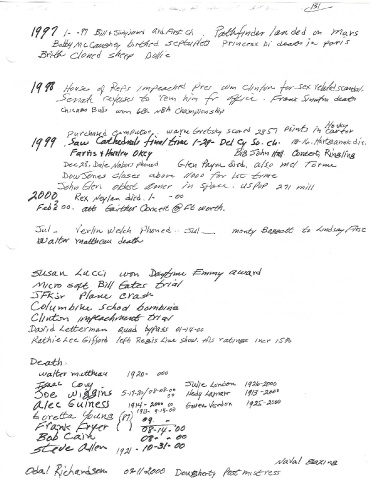 131
1997 1- -97 Bill + Simpsons and First Ch. Pathfinder landed on Mars
Bobby McCaughey birthed septuplets Princess Di death in Paris
British cloned sheep Dolly
1998 House of Reps impeached Pres Wm Clinton for sex related scandal.
Senate refuses to rem him fr office. Frank Sinatra death
Chicago Bulls won 6th NBA Championship
purchased computer. Wayne Gretsky scored 2857 points in Hockey Career
1999 Saw Cathedrals final time 1-28- Del Cy So. Ch.
Farris + Harley Okey Bob John Hall Concert, Ringling
Dec 28. Dale Nabors phoned Glen Payne died, also Mel Torme
Dow Jones closes above 11000 for 1st time
John Glen oldest astronaut in space. US Pop 271 mill
2000 Rex Neylan died 1- -00
Feb 00. att Gaither Concert @ Ft Worth.
Jul - Verlin Welch Phoned. Jul Monty Bassett to Lindsay First
Walter Matthau death
Susan Lucci won Daytime Emmy award
Microsoft Bill Gates trial
JFKjr Plane crash
Columbine school bombing
Clinton impeachment trial
David Letterman quad bypass 01-14-00
Kathie Lee Gifford left Regis Live show. His ratings incr 15%
Death -
Walter Matthau 1920- 000
Isaac Covy Julie London 1926-2000
Joe Wiggins 5-17-20/08-08-00 Hedy Lamarr 1913-2000
Alec Guiness 1914-2000 Gwen Verdon 1925-2000
Loretta Young (87) 1913-
Frank Fryer 08-14-00
Bob Cain 08- -00
Steve Allen 1921-10-31-00
Naval
Odal Richardson 02-11-2000 Dougherty Post mistress